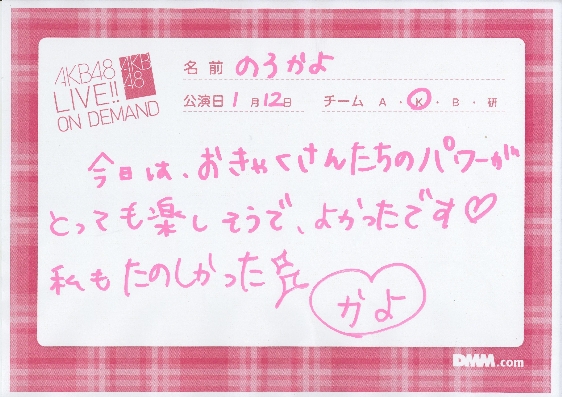 AKB48
LIVE!!
ON DEMAND
AKB
48
名前 のろかよ
公演日 1月12日 チーム A・K・B・研
今日は、おきゃくさんたちのパワーが
とっても楽しそうで、よかったです♡
私もたのしかった
かよ
DMM.com